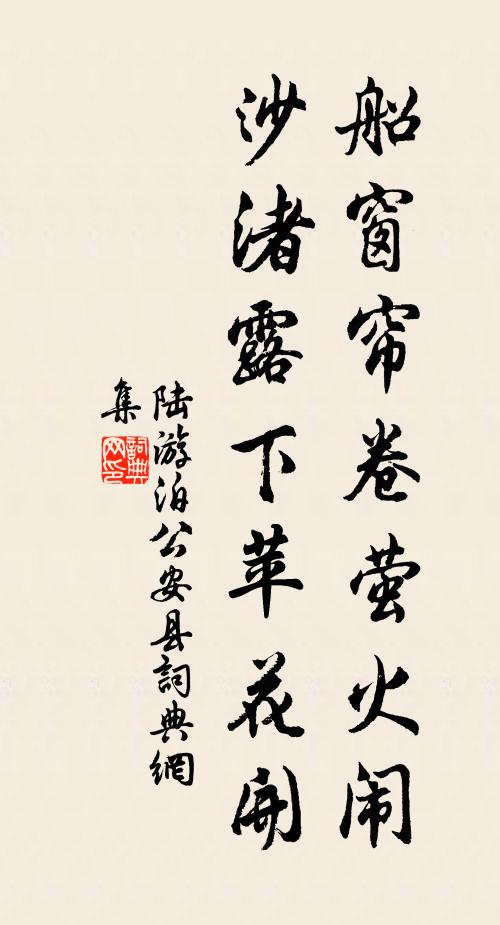 船窗帘卷萤火闹
沙渚露下苹花开
陆游泊公安县詞典網
集
詞典网印